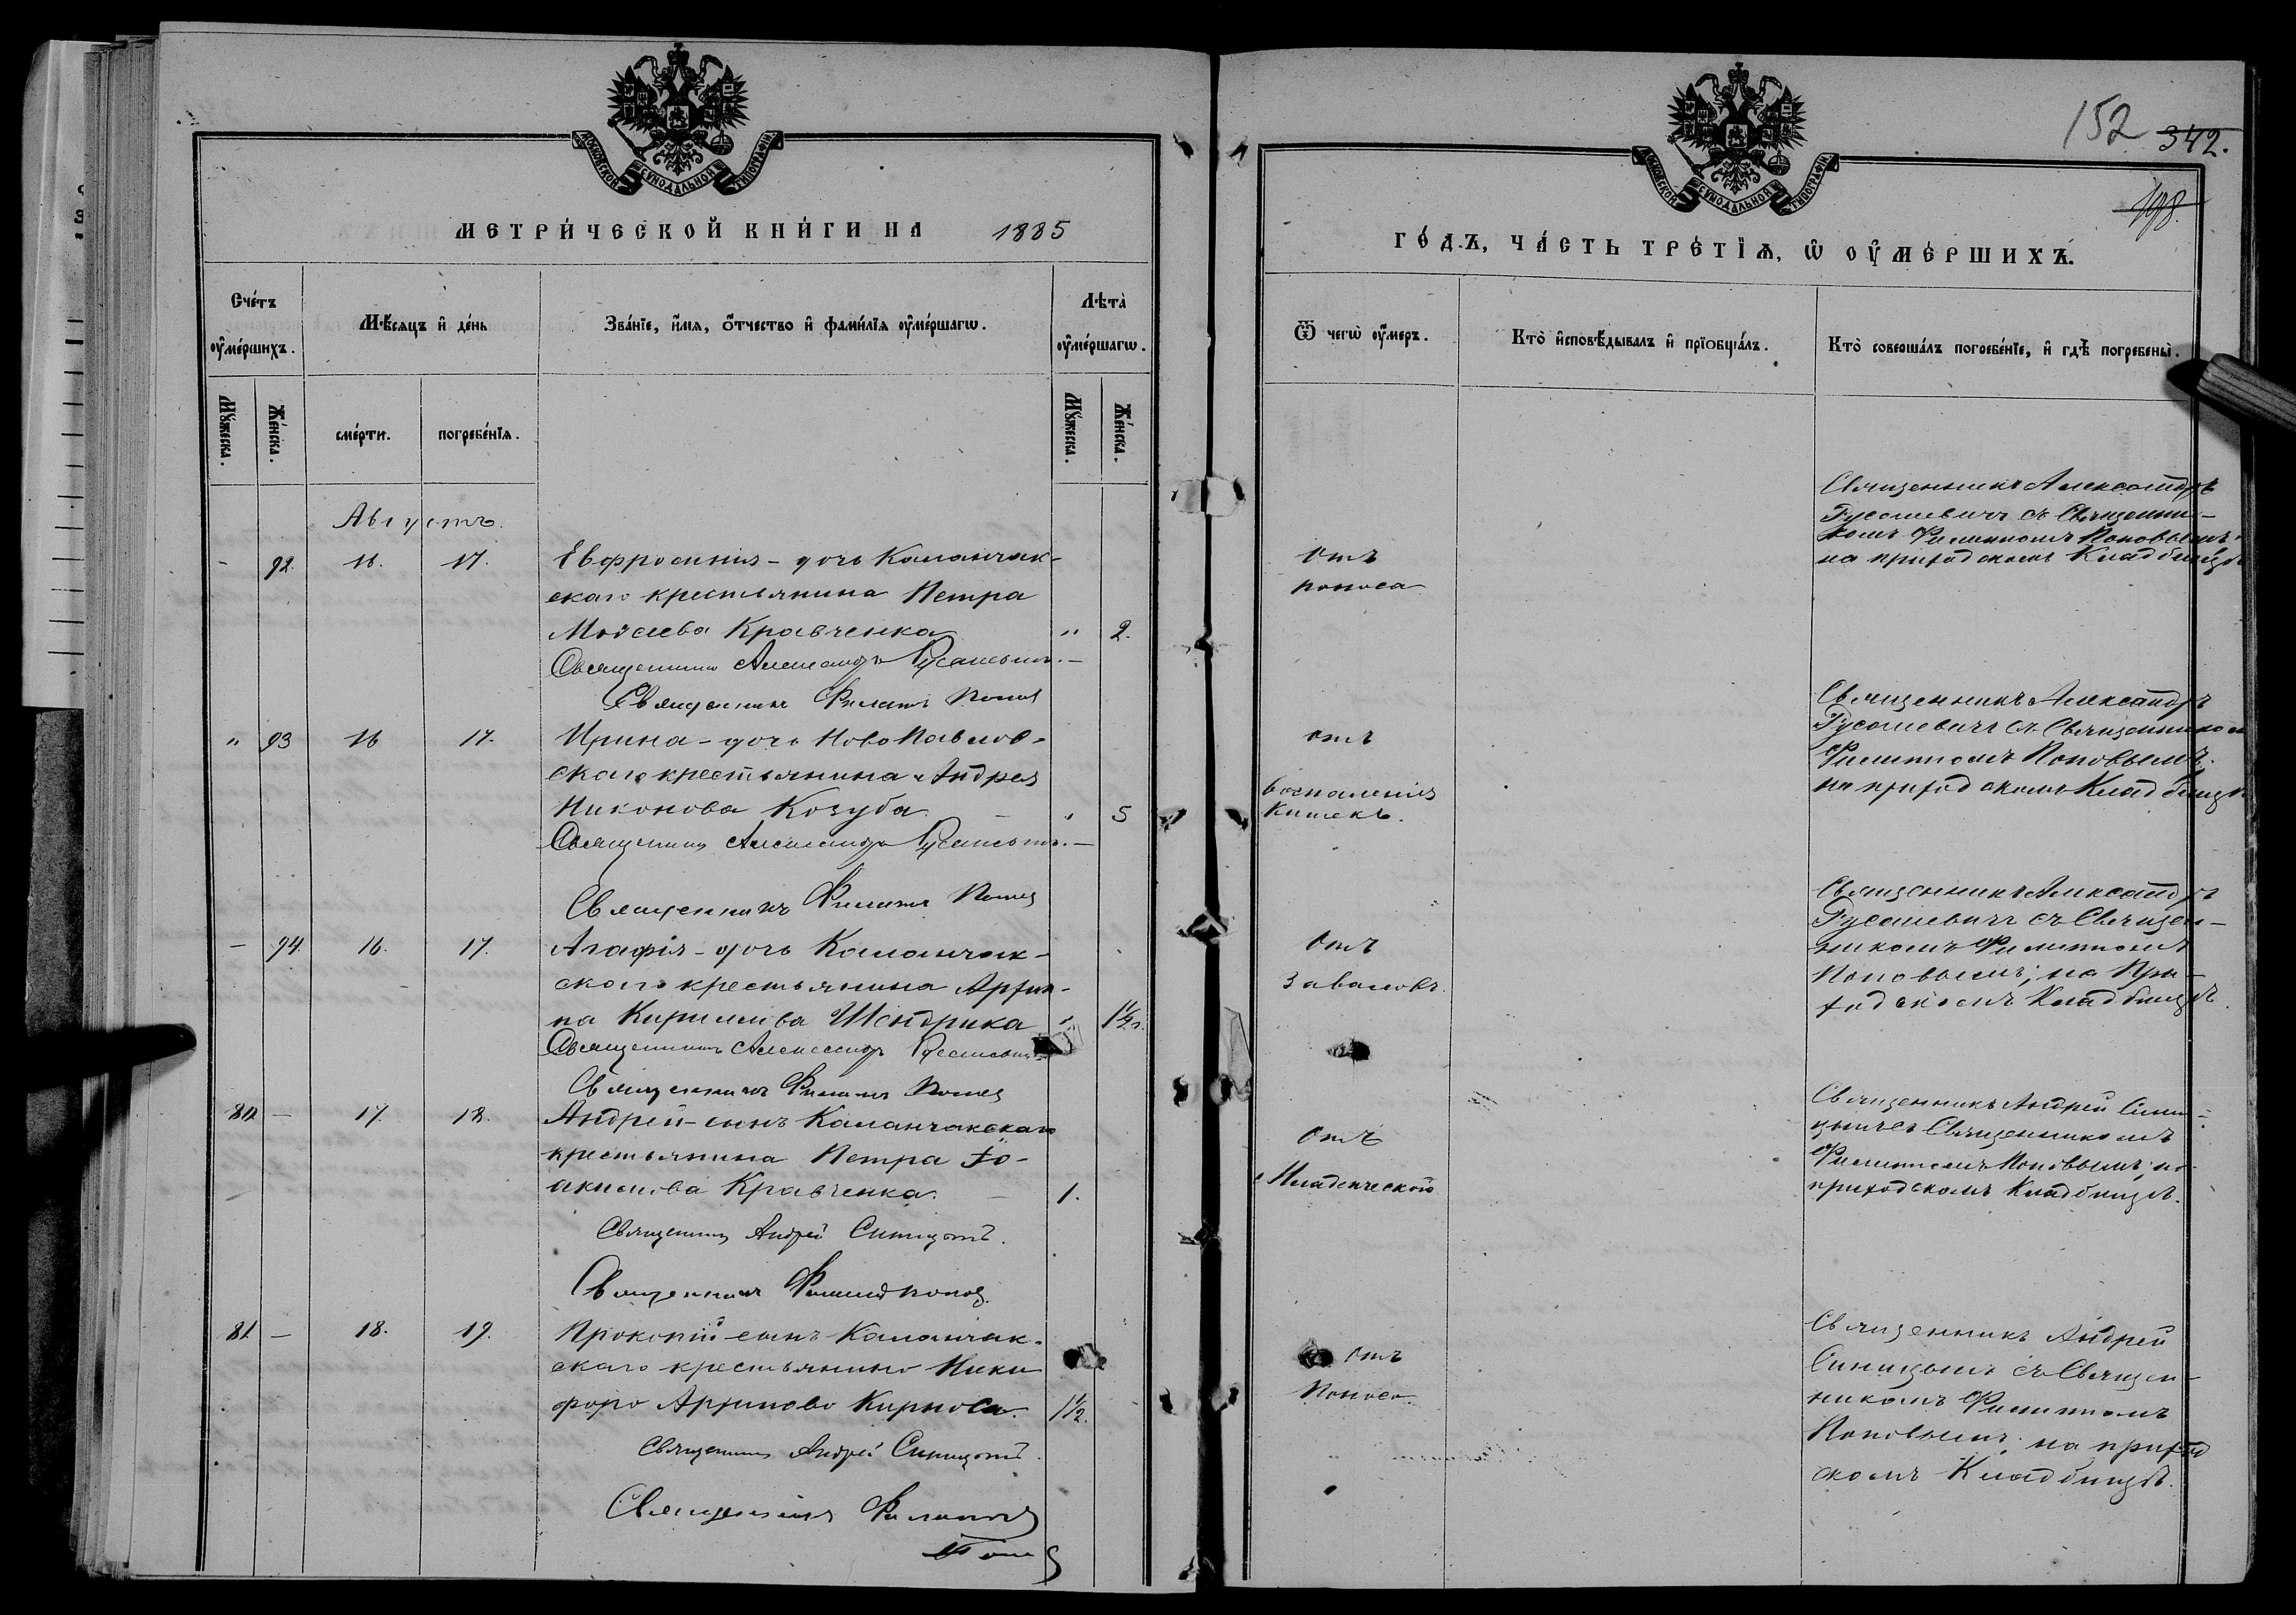 МОСКОВСКОЙ СѴНОДАЛЬНОЙ ТИПОГРАФІИ
МЕТРИ́ЧЕСКОЙ КНИ́ГИ НА 1885
Сче́тъ ᲂу҆ме́ршихъ.
Мѣ́сяцъ и҆ де́нь
Зва́нїе, и҆́мя, ѻ҆́тчество и҆ фами́лїя ᲂу҆ме́ршагѡ.
Лѣта̀ ᲂу҆ме́ршагѡ.
Мꙋ́жеска.
Же́нска.
сме́рти.
погребе́нїѧ.
Мꙋ́жеска.
Же́нска.
Августъ.
- 92. 16. 17. Евфросинія - дочь Каланчак-
скаго крестьянина Петра
Моѵсеева Кравченка „ 2.
Священникъ Александръ Русаневичъ. -
Священникъ Филиппъ Поповъ
„ 93 16 17. Ирина - дочь НовоПавлов-
скаго крестьянина Андрея
Никонова Козуба. - „ 5
Священникъ Александръ Русаневичъ. -
Священникъ Филиппъ Поповъ
- 94. 16. 17. Агафія - дочь Каланчак-
скаго крестьянина Архип-
па Кириллова Шендрика „ 1½ г.
Священникъ Александръ Русаневичъ
Священникъ Филиппъ Поповъ
80. - 17. 18. Андрей - сынъ Каланчакскаго
крестьянина Петра Іо-
акимова Кравченка. - 1.
Священникъ Андрей Синицынъ.
Священникъ Филиппъ Поповъ.
81. - 18. 19. Прокопій - сынъ Каланчак-
скаго крестьянина Ники
фора Архипова Кирноса. 1½.
Священникъ Андрей Синицынъ.
Священникъ Филиппъ
Поповъ
152 342.
198.
МОСКОВСКОЙ СѴНОДАЛЬНОЙ ТИПОГРАФІИ
ГО́ДЪ, ЧА́СТЬ ТРЕ́ТЇѦ, Ѡ҆ ОУ҆МЕ́РШИХЪ.
Ѿ чегѡ̀ ᲂу҆́меръ.
Кто̀ и҆сповѣ́дывалъ и҆ прїобща́лъ.
Кто̀ соверша́лъ погребе́нїе, и҆ гдѣ̀ погребены̀.
Отъ
поноса
Священникъ Александръ
Русаневичъ съ Священни-
комъ Филиппомъ Поповымъ
на приходскомъ Кладбищѣ
отъ
воспаленія
Кишекъ.
Священникъ Александръ
Русаневичъ съ Священникомъ
Филиппомъ Поповымъ.
на приходскомъ Кладбищѣ
Отъ
Заваловъ.
Священникъ Александръ
Русаневичъ съ Священ-
никомъ Филиппомъ
Поповымъ; на При-
ходскомъ Кладбищѣ.
Отъ
Младенческой
Священникъ Андрей Сини-
цынъ съ Священникомъ
Филиппомъ Поповымъ; на
приходскомъ Кладбищѣ.
Отъ
Поноса.
Священникъ Андрей
Синицынъ съ Священ-
никомъ Филиппомъ
Поповымъ; на приход
скомъ Кладбищѣ.